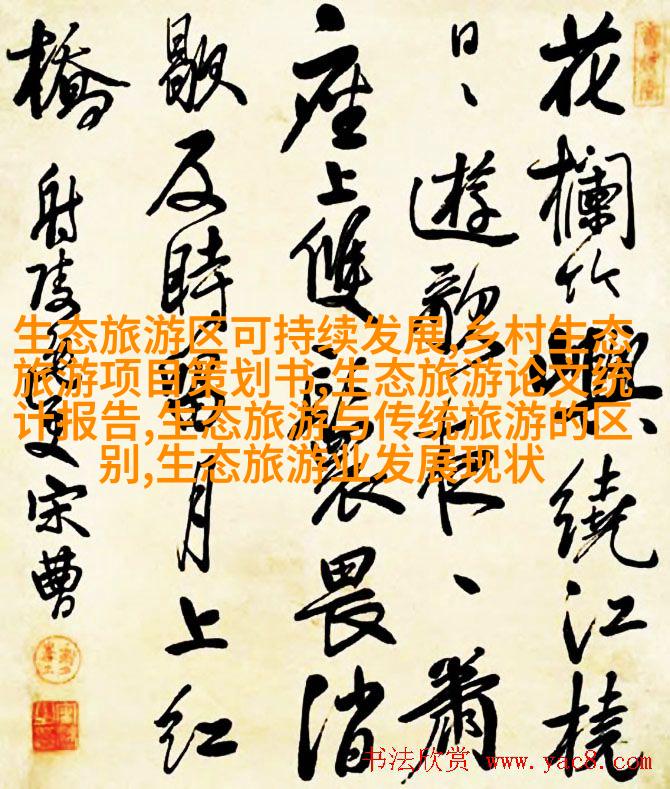 花欄竹嶼、繞江橈
日、遊歌夜、簫
座上雙鬟畏消
歇及時留月上紅
橋
射陵逸史宋曹
生态旅游区可持续发展,乡村生态
旅游项目策划书,生态旅游论文统
计报告,生态旅游与传统旅游的区
别,生态旅游业发展现状
书法欣赏 www.yac8.com